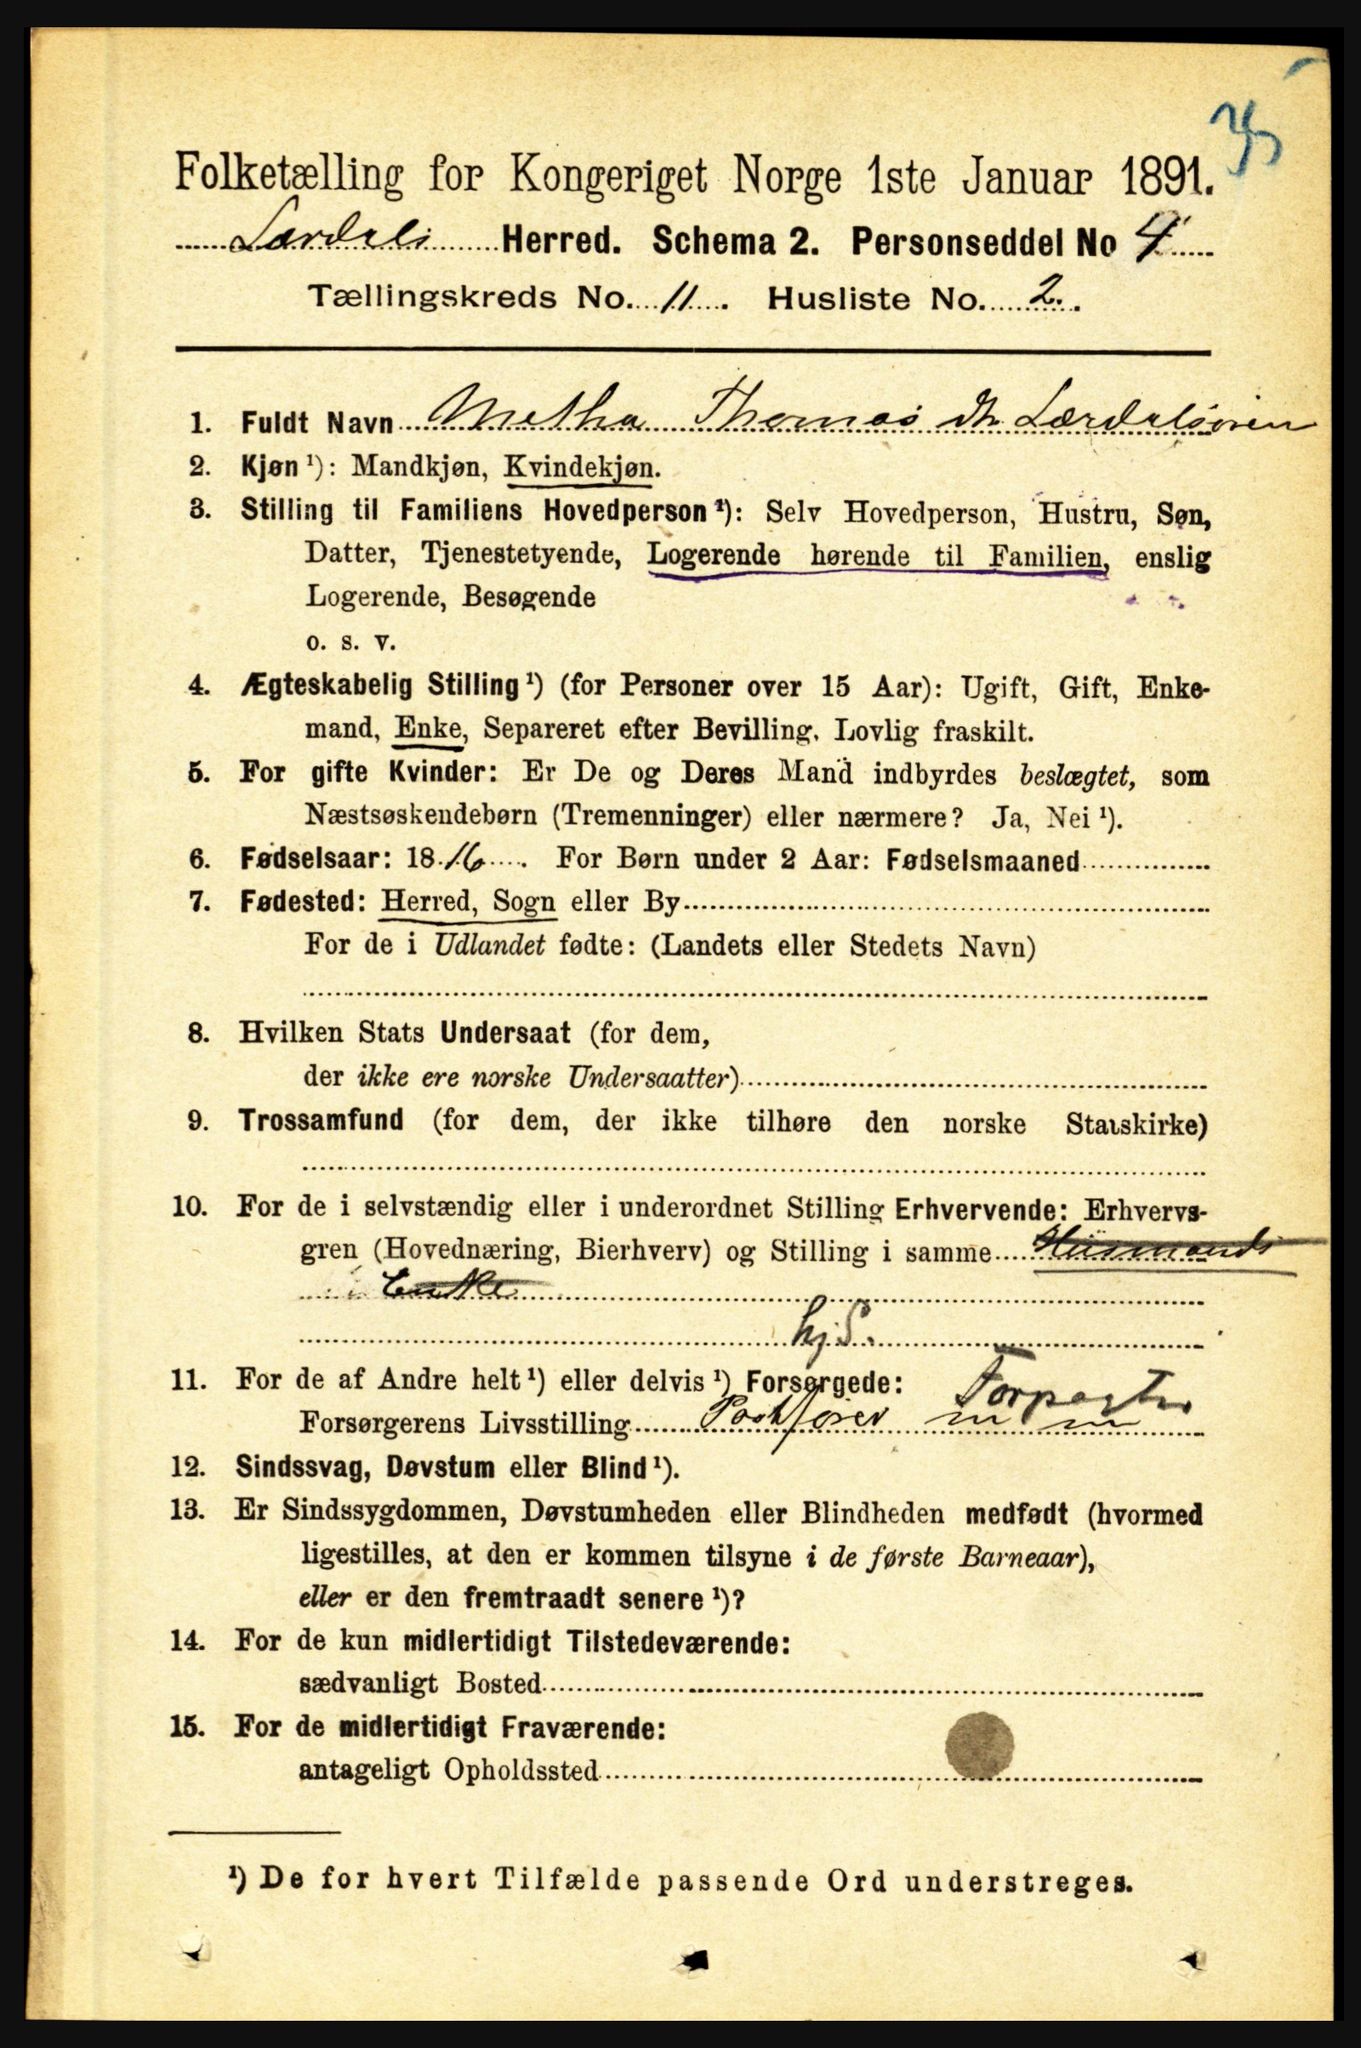 35
Folketælling for Kongeriget Norge 1ste Januar 1891.
Lærdals Herred. Schema 2. Personseddel No 4
Tællingskreds No. 11. Husliste No. 2.
1. Fuldt Navn Metha Thomas dtr Lærdalsøren
2. Kjøn ¹): Mandkjøn, Kvindekjøn.
3. Stilling til Familiens Hovedperson ¹): Selv Hovedperson, Hustru, Søn,
Datter, Tjenestetyende, Logerende hørende til Familien, enslig
Logerende, Besøgende
o. s. v.
4. Ægteskabelig Stilling ¹) (for Personer over 15 Aar): Ugift, Gift, Enke-
mand, Enke, Separeret efter Bevilling. Lovlig fraskilt.
5. For gifte Kvinder: Er De og Deres Mand indbyrdes beslægtet, som
Næstsøskendebørn (Tremenninger) eller nærmere? Ja, Nei ¹).
6. Fødselsaar: 1816. For Børn under 2 Aar: Fødselsmaaned
7. Fødested: Herred, Sogn eller By
For de i Udlandet fødte: (Landets eller Stedets Navn)
8. Hvilken Stats Undersaat (for dem,
der ikke ere norske Undersaatter)
9. Trossamfund (for dem, der ikke tilhøre den norske Statskirke)
10. For de i selvstændig eller i underordnet Stilling Erhvervende: Erhvervs-
gren (Hovednæring, Bierhverv) og Stilling i samme Husmands
Enke
hj S.
11. For de af Andre helt ¹) eller delvis ¹) Forsørgede: Forpagter
Forsørgerens Livsstilling Postfører
12. Sindssvag, Døvstum eller Blind ¹).
13. Er Sindssygdommen, Døvstumheden eller Blindheden medfødt (hvormed
ligestilles, at den er kommen tilsyne i de første Barneaar),
eller er den fremtraadt senere ¹)?
14. For de kun midlertidigt Tilstedeværende:
sædvanligt Bosted
15. For de midlertidigt Fraværende:
antageligt Opholdssted
¹) De for hvert Tilfælde passende Ord understreges.